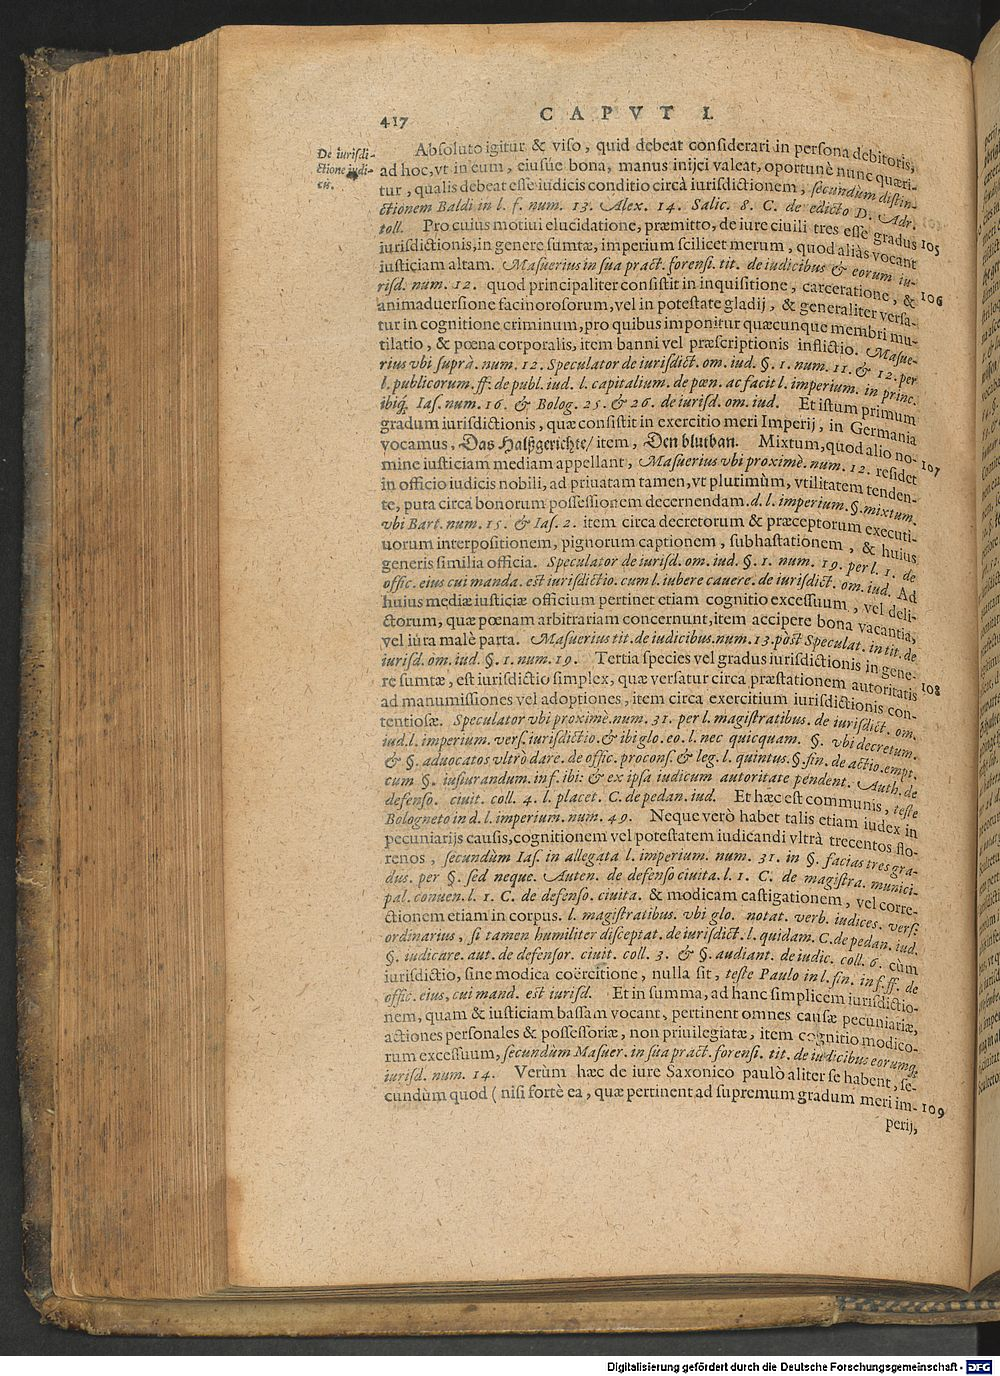 417
CAPVT I.
De iurisdi-
ctione iudi-
cis.
Absoluto igitur & viso, quid debeat considerari in persona debitoris,
ad hoc, vt in eum, eiusúe bona, manus inijci valeat, oportunè nunc quæri-
tur, qualis debeat esse iudicis conditio circà iurisdictionem, secundùm distin-
ctionem Baldi in l. f. num. 13. Alex. 14. Salic. 8. C. de edicto D. Adr.
toll. Pro cuius motiui elucidatione, præmitto, de iure ciuili tres esse gradus
105
iurisdictionis, in genere sumtæ, imperium scilicet merum, quod aliàs vocant
iusticiam altam. Masuerius in sua pract. forensi. tit. de iudicibus & eorum iu-
risd. num. 12. quod principaliter consistit in inquisitione, carceratione, &
106
animaduersione facinorosorum, vel in potestate gladij, & generaliter versa-
tur in cognitione criminum, pro quibus imponitur quæcunque membri mu-
tilatio, & pœna corporalis, item banni vel præscriptionis inflictio. Masue-
rius vbi suprà. num. 12. Speculator de iurisdict. om. iud. §. 1. num. 11. & 12. per
l. publicorum. ff. de publ. iud. l. capitalium. de pœn. ac facit l. imperium. in princ.
ibiq́. Ias. num. 16. & Bolog. 25. & 26. de iurisd. om. iud. Et istum primum
gradum iurisdictionis, quæ consistit in exercitio meri Imperij, in Germania
vocamus, Das Halßgerichte/ item, Den blutban. Mixtum, quod alio no-
107
mine iusticiam mediam appellant, Masuerius vbi proximè. num. 12. residet
in officio iudicis nobili, ad priuatam tamen, vt plutimùm, vtilitatem tenden-
te, puta circa bonorum possessionem decernendam. d. l. imperium. §. mixtum.
vbi Bart. num. 15. & Ias. 2. item circa decretorum & præceptorum executi-
uorum interpositionem, pignorum captionem, subhastationem, & huius
generis similia officia. Speculator de iurisd. om. iud. §. 1. num. 19. per l. 1. de
offic. eius cui manda. est iurisdictio. cum l. iubere cauere. de iurisdict. om. iud. Ad
huius mediæ iusticiæ officium pertinet etiam cognitio excessuum, vel deli-
ctorum, quæ pœnam arbitrariam concernunt, item accipere bona vacantia,
vel iura malè parta. Masuerius tit. de iudicibus. num. 13. post Speculat. in tit. de
iurisd. om. iud. §. 1. num. 19. Tertia species vel gradus iurisdictionis in gene-
re sumtæ, est iurisdictio simplex, quæ versatur circa præstationem autoritatis
108
ad manumissiones vel adoptiones, item circa exercitium iurisdictionis con-
tentiosæ. Speculator vbi proximè. num. 31. per l. magistratibus. de iurisdict. om.
iud. l. imperium. vers. iurisdictio. & ibi glo. eo. l. nec quicquam. §. vbi decretum.
& §. aduocatos vltrò dare. de offic. procons. & leg. l. quintus. §. fin. de actio. empt.
cum §. iusiurandum. inf. ibi: & ex ipsa iudicum autoritate pendent. Auth. de
defenso. ciuit. coll. 4. l. placet. C. de pedan. iud. Et hæc est communis, teste
Bologneto in d. l. imperium. num. 49. Neque verò habet talis etiam iudex in
pecuniarijs causis, cognitionem vel potestatem iudicandi vltrà trecentos flo-
renos, secundùm Ias. in allegata l. imperium. num. 31. in §. facias tres gra-
dus. per §. sed neque. Auten. de defenso ciuita. l. 1. C. de magistra. munici-
pal. conuen. l. 1. C. de defenso. ciuita. & modicam castigationem, vel corre-
ctionem etiam in corpus. l. magistratibus. vbi glo. notat. verb. iudices. vers:
ordinarius, si tamen humiliter disceptat. de iurisdict. l. quidam. C. de pedan. iud.
§. iudicare. aut. de defensor. ciuit. coll. 3. & §. audiant. de iudic. coll. 6. cùm
iurisdictio, sine modica coërcitione, nulla sit, teste Paulo in l. fin. in f. ff. de
offic. eius, cui mand. est iurisd. Et in summa, ad hanc simplicem iurisdictio-
nem, quam & iusticiam bassam vocant, pertinent omnes causæ pecuniariæ,
actiones personales & possessoriæ, non priuilegiatæ, item cognitio modico-
rum excessuum, secundùm Masuer. in sua pract. forensi. tit. de iudicibus eorumq́;
iurisd. num. 14. Verùm hæc de iure Saxonico paulò aliter se habent, se-
cundùm quod ( nisi fortè ea, quæ pertinent ad supremum gradum meri im-
109
perij,
Digitalisierung gefördert durch die Deutsche Forschungsgemeinschaft - DFG